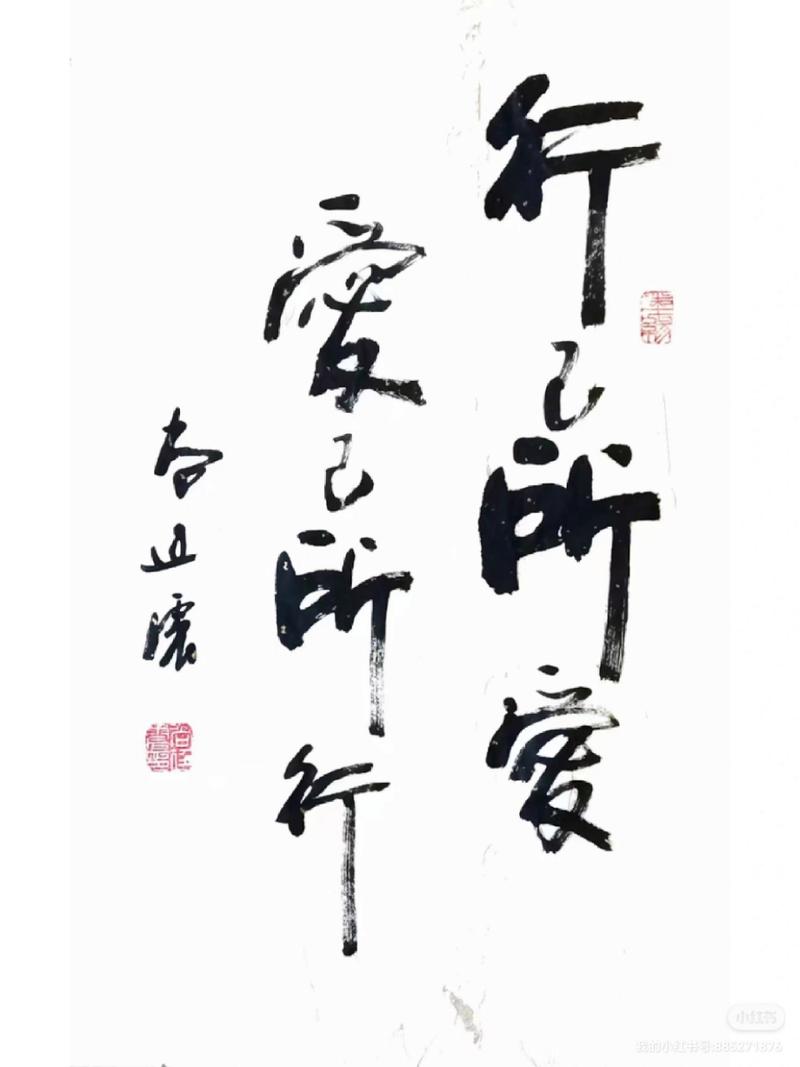 行己所愛
愛己所行
小红书
我的小红书号:885271876